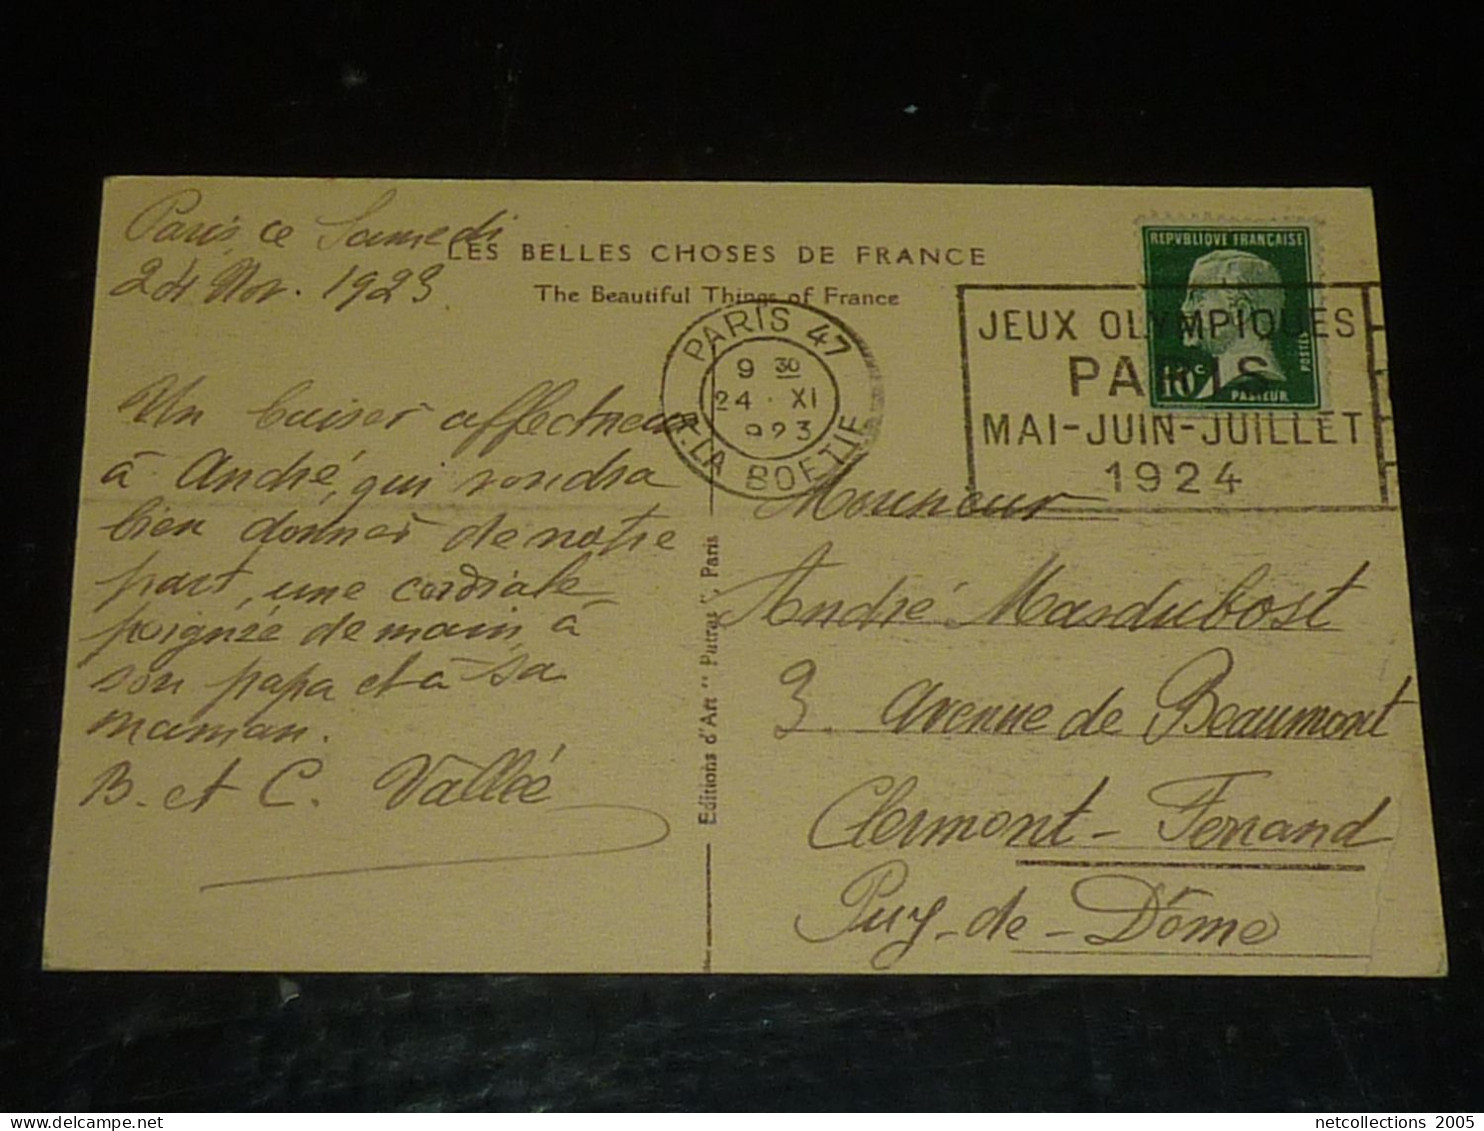 Paris, ce Samedi
24 Nov. 1923.
LES BELLES CHOSES DE FRANCE
The Beautiful Things of France
Un baiser affectueux
à André, qui voudra
bien donner de notre
part, une cordiale
poignée de main à
son papa et à sa
maman.
B. et C. Vallée
Editions d'Art "Putras", Paris
PARIS 47
9 30
24 · XI
923
R. LA BOETIE
REPUBLIQUE FRANÇAISE
POSTES
10c
PASTEUR
JEUX OLYMPIQUES
PARIS
MAI-JUIN-JUILLET
1924
Monsieur
André Mardubost
3 Avenue de Beaumont
Clermont-Ferrand
Puy-de-Dôme
netcollections 2005